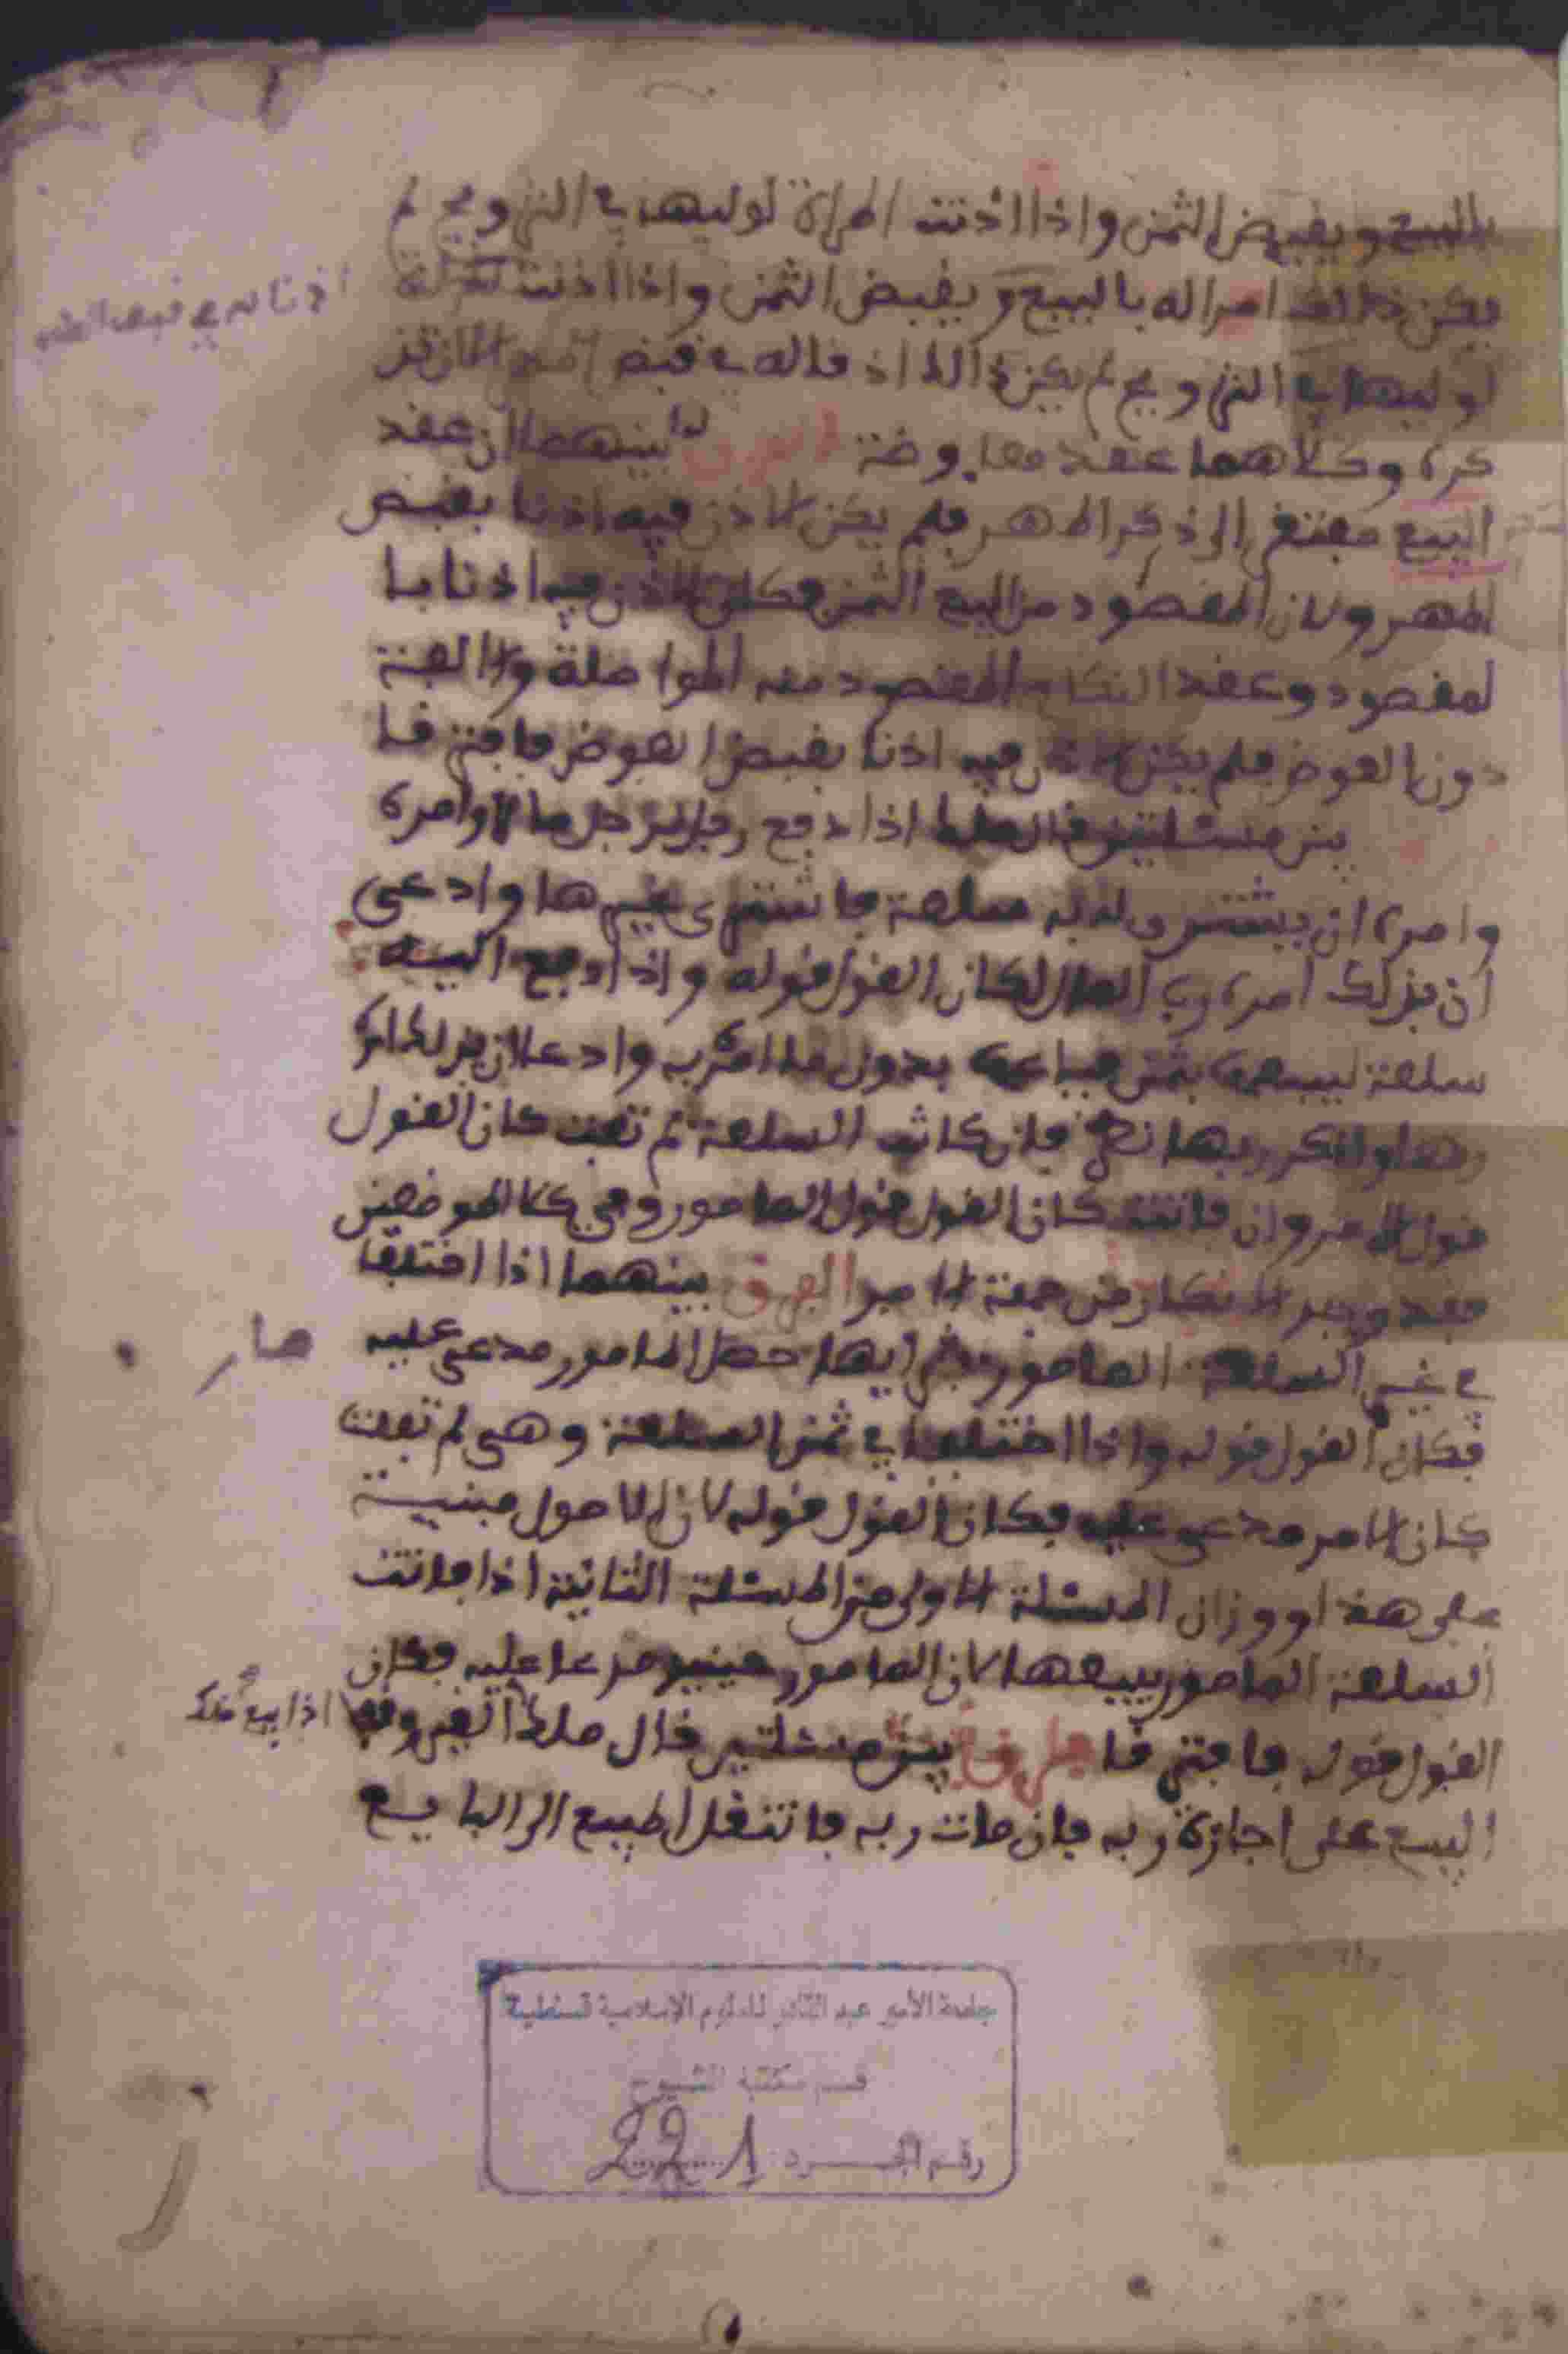 بالبيع ويقبض الثمن واذا اذنت المراة لوليها في التزويج لم
يكن ذالك امرا له بالبيع ويقبض الثمن واذا اذنت المراة
اذنا له في قبض
لوليها في التزويج لم يكن ذالك اذناله في قبض
وكلاهما عقد معاوضة الفرق بينهما ان عقد
البيع مفتقر الى ذكر المهر فلم يكن الاذن فيه اذنا بقبض
المهر ولان المقصود من البيع الثمن فكان الاذن فيه اذنا با
لمقصود وعقد النكاح المقصود منه المواصلة والالفة
دون العوض فلم يكن الاذن فيه اذنا بقبض العوض فافترقا
بين مسئلتين قال مالك اذا دفع رجل لرجل مالا وامره
وامره ان يشتري له به سلعة فاشترى غيرها وادعى
ان بذلك امره رب المال لكان القول قوله واذا دفع اليه
سلعة ليبيعها بثمن فباعها بدون ما امره به وادعا ان بذلك امره
ربها وانكر ربها فان كانت السلعة لم تفت كان القول
قول الامر وان فاتت كان القول قول المامور وفي كلا الموضعين
فقد وجد الانكار من جهة الامر الفرق بينهما اذا اختلفا
في غير السلعة المامور بشرايها حصل المامور مدعى عليه
صار
فكان القول قوله واذا اختلفا في ثمن السلعة وهي لم تفت
كان الامر مدعى عليه فكان القول قوله لان الاصول مبنية
على هذا ووزان المسئلة الاولى من المسئلة الثانية اذا فاتت
السلعة المامور ببيعها لان المامور حينيذ مدعا عليه فكان
القول قوله فافترقا فرق بين مسئلتين قال مالك اذا بيع ملك
البيع على اجازة ربه فان مات ربه فانتقل المبيع الى البايع
جامعة الأمير عبد القادر للعلوم الإسلامية قسنطينة
قسم مكتبة الشيوخ
رقم الجرد 221